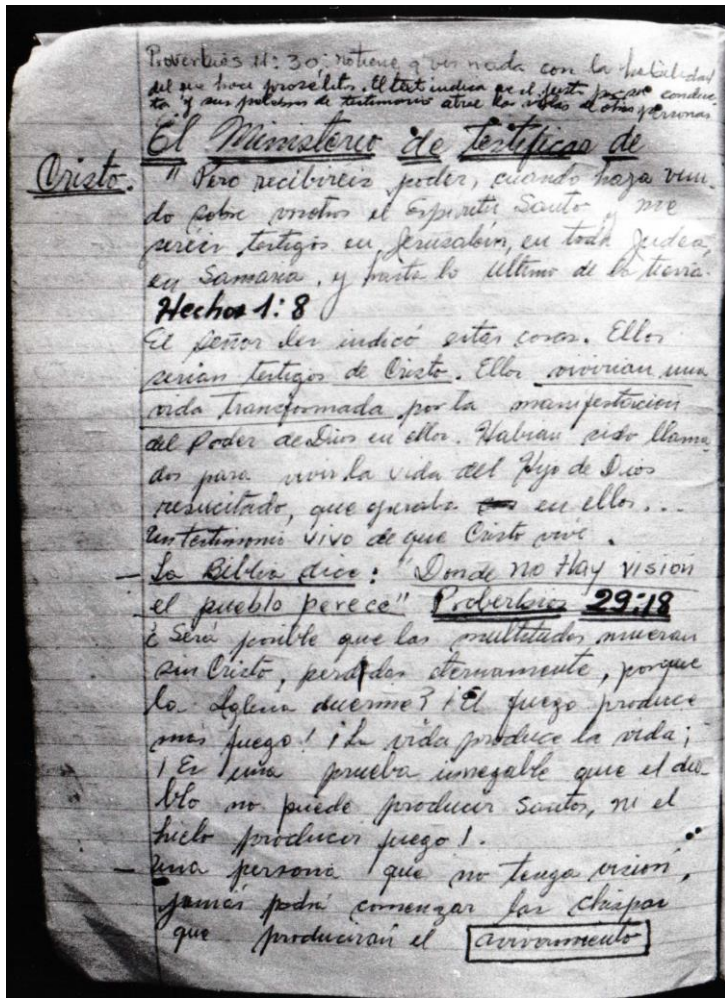 Proverbios 11:30: no tiene q ver nada con la habilidad
del que hace prosélitos. El text indica que el justo por su conduc
ta y sus palabras de testimonio atrae las vidas de otras personas
El Ministerio de testificar de
Cristo.
"Pero recibireis poder, cuando haya veni-
do sobre vosotros el Espiritu Santo, y me
sereis testigos en Jerusalén, en toda Judea,
en Samaria, y hasta lo último de la tierra.
Hechos 1:8
El señor les indicó estas cosas. Ellos
serian testigos de Cristo. Ellos vivirian una
vida transformada por la manifestacion
del Poder de Dios en ellos. Habian sido llama-
dos para vivir la vida del Hijo de Dios
resucitado, que operaba en ellos...
Un testimonio vivo de que Cristo vive.
— La Biblia dice: "Donde no Hay visión
el pueblo perece" Proberbios 29:18
¿Será posible que las multitudes mueran
sin Cristo, perdidas eternamente, porque
la Iglesia duerme? ¡El fuego produce
más fuego! ¡La vida produce la vida;
¡Es una prueba innegable que el dia-
blo no puede producir santos, ni el
hielo producir fuego!.
— Una persona que no tenga visión,
jamás podrá comenzar las chispas
que produciran el avivamiento